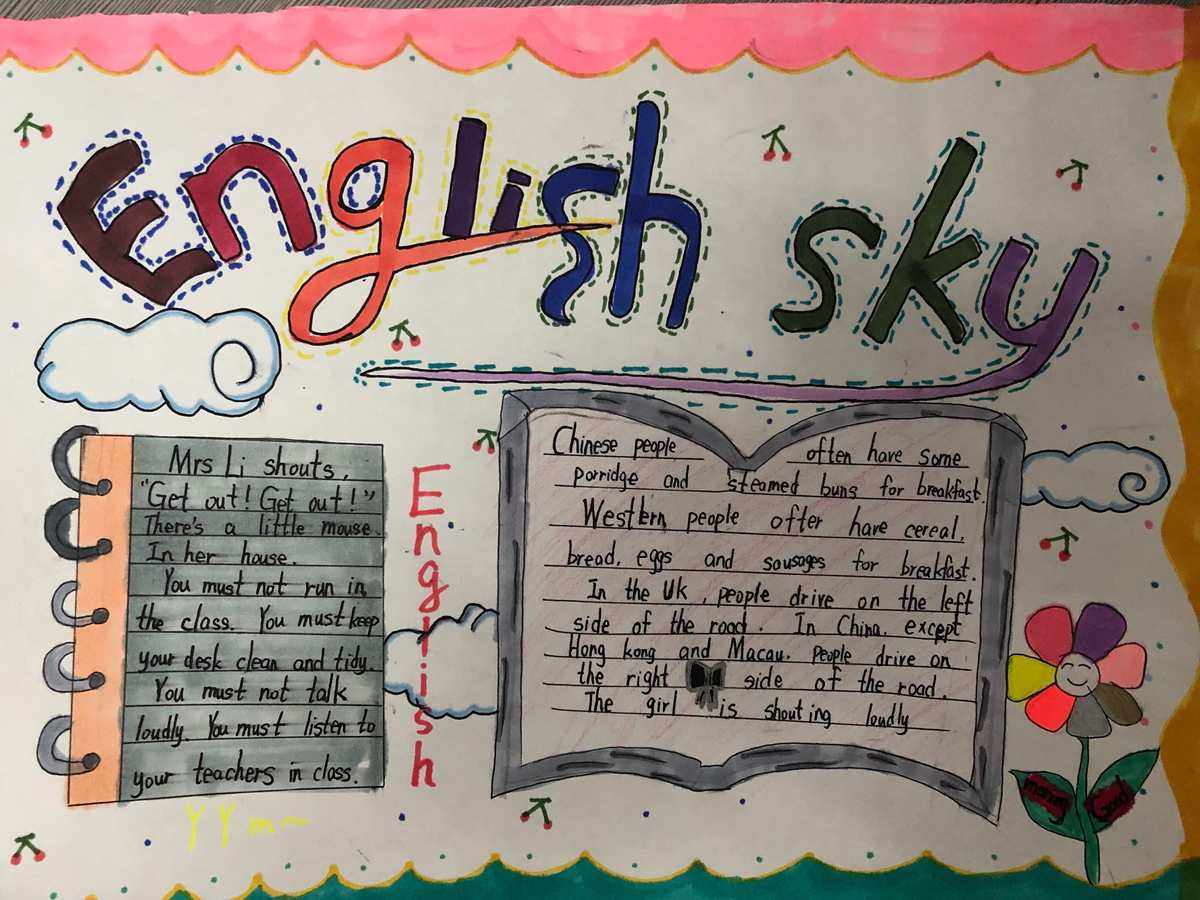 English sky
Mrs Li shouts,
"Get out! Get out!"
There's a little mouse
In her house.
You must not run in
the class. You must keep
your desk clean and tidy.
You must not talk
loudly. You must listen to
your teachers in class.
YYm~
English
Chinese people often have some
porridge and steamed buns for breakfast.
Western people ofter have cereal,
bread, eggs and sausages for breakfast.
In the Uk, people drive on the left
side of the road. In China, except
Hong kong and Macau, people drive on
the right side of the road.
The girl is shouting loudly
morning Good